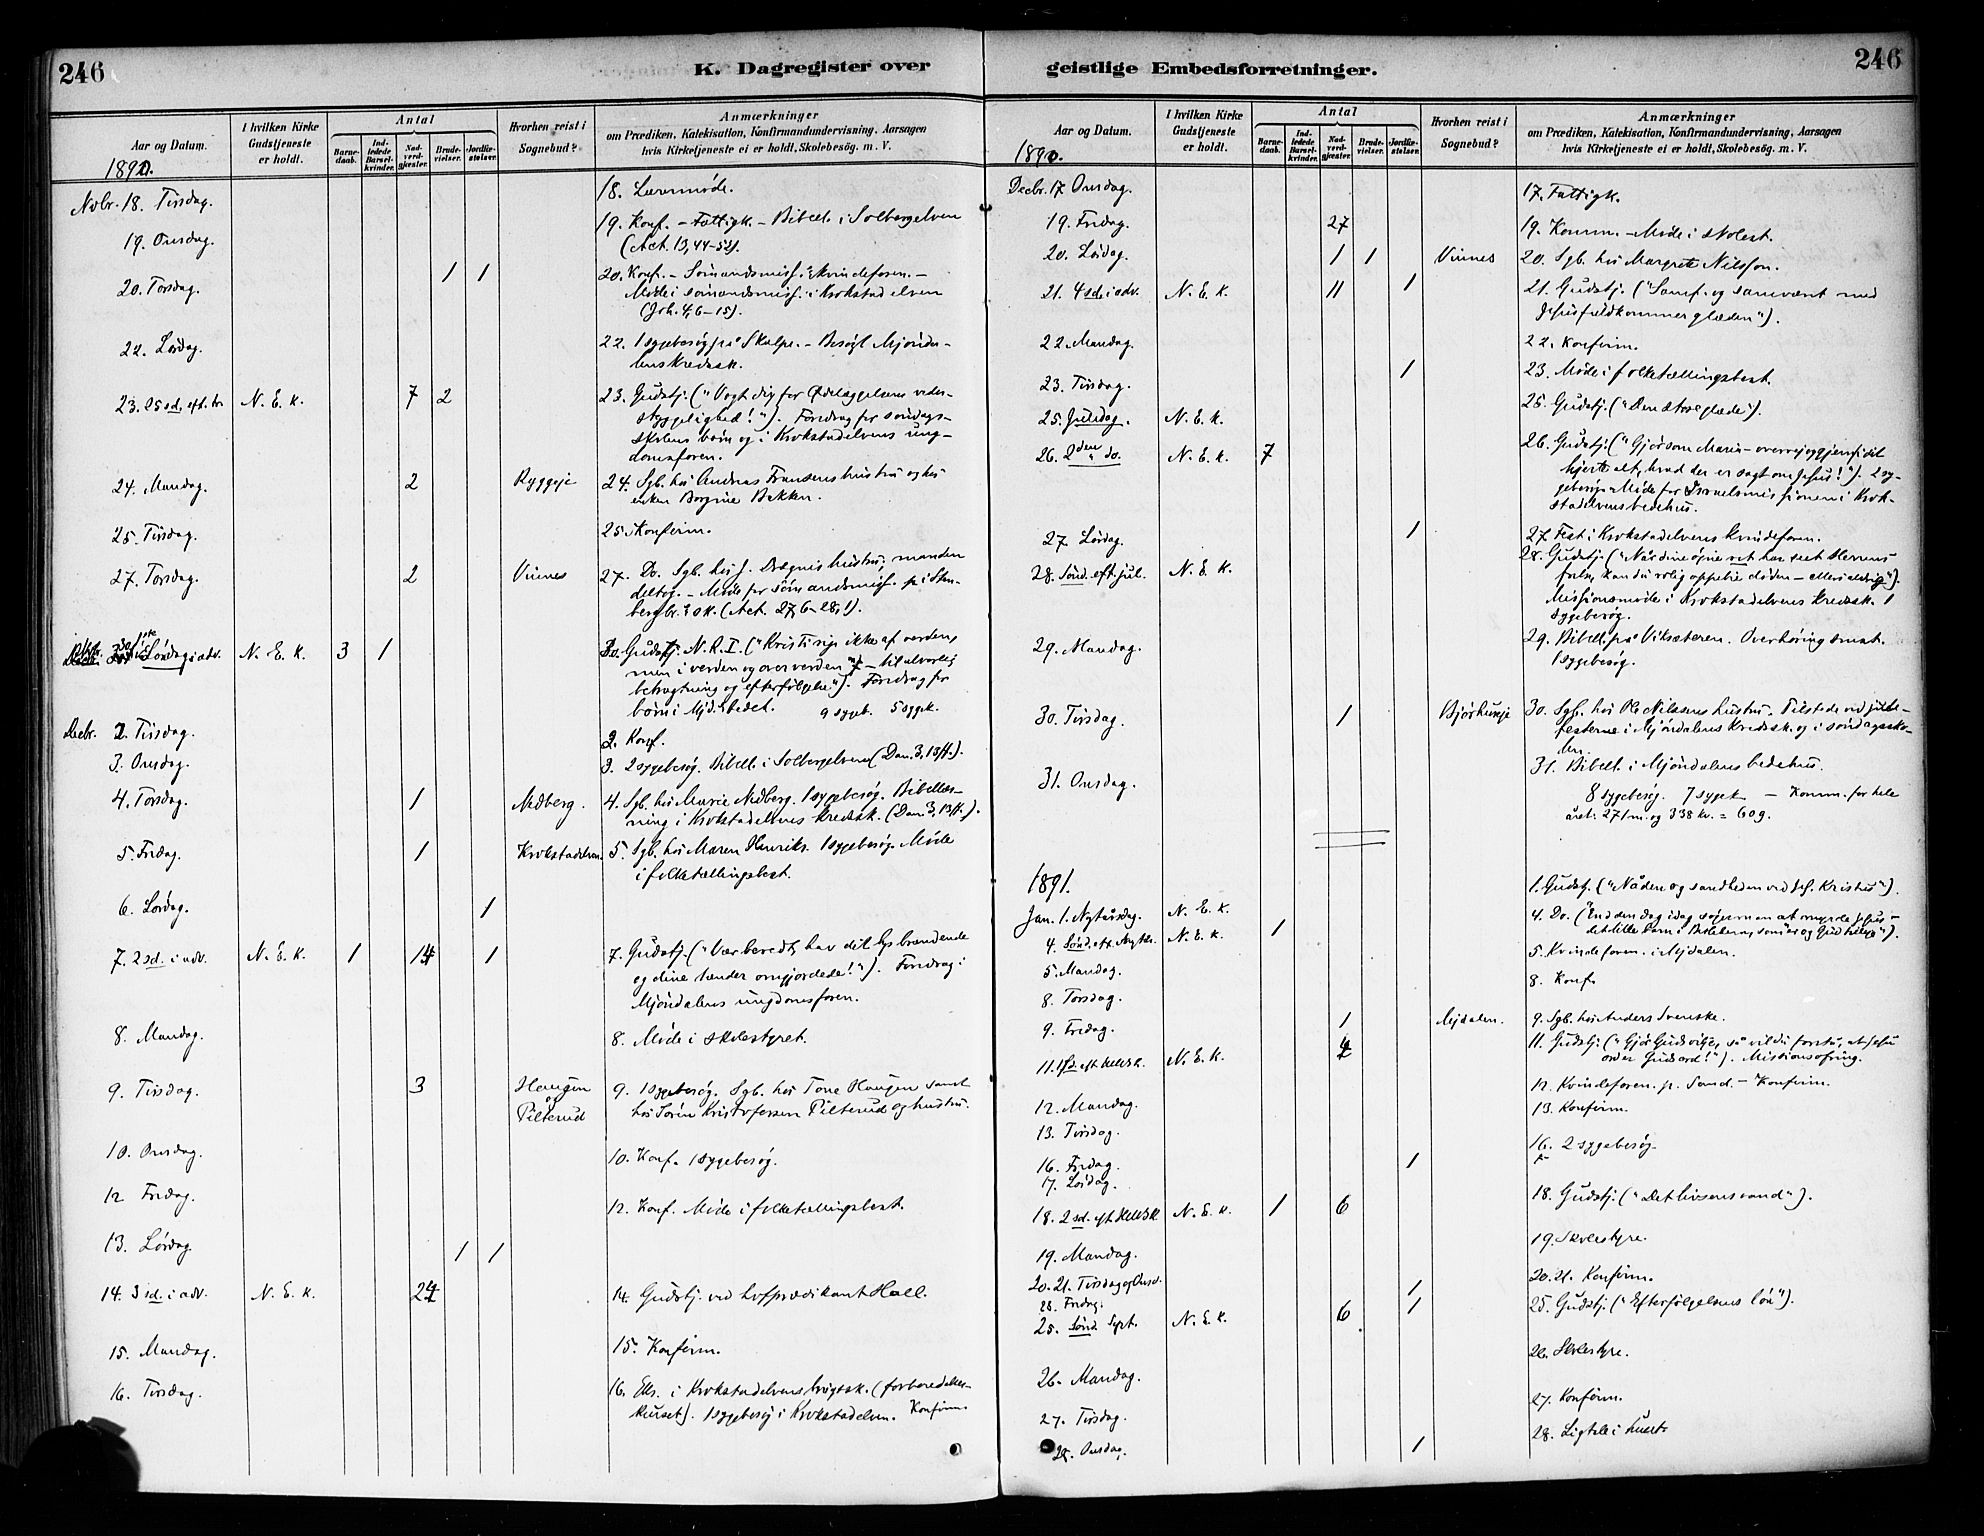 246
K. Dagregister over
Aar og Datum.
I hvilken Kirke Gudstjeneste er holdt.
Antal
Barne-daab.
Ind-ledede Barsel-kvinder.
Nad-verd-gjester.
Brude-vielser.
Jordfæ-stelser.
Hvorhen reist i Sognebud?
Anmærkninger
om Prædiken, Katekisation, Konfirmandundervisning, Aarsagen
hvis Kirketjeneste ei er holdt, Skolebesög, m. V.
1890.
Novbr. 18. Tirsdag. 18. Lærermøde.
19. Onsdag. 19. Konf. – Fattigk. – Bibell. i Solbergelven
(Act. 13, 44–52).
20. Torsdag. 1 1 20. Konf. – Sømandsmiss. kvindeforen. –
Møde i sømandsmiss. i Krokstadelven
(Joh. 4, 6–15).
22. Lørdag. 22. 1 sygebesøg på Skalpe. – Besøgt Mjønda-
lens kredssk.
23. 25 sd. eft. tr. N. E. K. 7 2 23. Gudstj. ("Vogt dig for Ødelæggelsens veder-
styggelighed!"). Foredrag for søndags-
skolens børn og i Krokstadelvens ung-
domsforen.
24. Mandag. 2 Ryggeje 24. Sgb. hos Andreas Fransens hustru og hos
enken Borgine Bakken.
25. Tirsdag. 25. Konfirm.
27. Torsdag. 2 Vinnes 27. Do. Sgb. hos J. Drægnis hustru, manden
deltog. – Møde for sømandsmiss. på Sten-
berg br. sk. (Act. 27, 6–28, 1).
30. 1ste Søndag i adv. N. E. K. 3 1 30. Gudstj. N. R. I. ("Kristi rige ikke af verden,
men i verden og over verden" – til alvorlig
betragtning og efterfølgelse"). Foredrag for
børn i Mjd. bedeh. 9 sygeb. 5 sygek.
Decbr. 2. Tirsdag. 2. Konf.
3. Onsdag. 3. 2 sygebesøg. Bibell. i Solbergelven (Dan. 3, 13ff.).
4. Torsdag. 1 Nedberg. 4. Sgb. hos Marie Nedberg. 1 sygebesøg. Bibellæs-
ning i Krokstadelvens kredssk. (Dan. 3, 13ff.).
5. Fredag. 1 Krokstadelven. 5. Sgb. hos Maren Henriks. 1 sygebesøg. Møde
i folketællingsbest.
6. Lørdag. 1
7. 2 sd. i adv. N. E. K. 1 14 1 7. Gudstj. ("Vær beredt, hav dit lys brændende
og dine lænder omgjordede!"). Foredrag i
Mjøndalens ungdomsforen.
8. Mandag. 8. Møde i skolestyret.
9. Tirsdag. 3 Haugen
og
Pilterud 9. 1 sygebesøg. Sgb. hos Tone Haugen samt
hos Søren Kristofersen Pilterud og hustru.
10. Onsdag. 10. Konf. 1 sygebesøg.
12 Fredag. 12. Konf. Møde i folketællingsbest.
13. Lørdag. 1 1
14. 3 sd. i adv. N. E. K. 24 14. Gudstj. ved hofprædikant Hall.
15. Mandag. 15. Konfirm.
16. Tirsdag. 16. Eks. i Krokstadelvens brugssk. (forberedelses-
kurset). 1 sygebesøg i Krokstadelven. Konfirm.
geistlige Embedsforretninger.
246
Aar og Datum.
I hvilken Kirke Gudstjeneste er holdt.
Antal
Barne-daab.
Ind-ledede Barsel-kvinder.
Nad-verd-gjester.
Brude-vielser.
Jordfæ-stelser.
Hvorhen reist i Sognebud?
Anmærkninger
om Prædiken, Katekisation, Konfirmandundervisning, Aarsagen
hvis Kirketjeneste ei er holdt, Skolebesög, m. V.
1890.
Decbr. 17 Onsdag. 17. Fattigk.
19. Fredag. 27 19. Komm. – Møde i skolest.
20. Lørdag. 1 1 Vinnes 20. Sgb. hos Margrete Nilsson.
21. 4 sd. i adv. N. E. K. 11 1 21. Gudstj. ("Samf. og samvært med
Jesus fuldkommer glæden").
22. Mandag. 22. Konfirm.
23. Tirsdag. 1 23. Møde i folketællingsbest.
25. Juledag. N. E. K. 25. Gudstj. ("Den store glæde").
26. 2den do. N. E. K. 7 26. Gudstj. ("Gjør som Maria – overvej og gjem i dit
hjerte alt, hvad der er sagt om Jesus!"). 2 sy-
gebesøg. Møde for Israelsmissionen i Krok-
stadelvens bedehus.
27. Lørdag. 1 27. Fest i Krokstadelvens kvindeforen.
28. Sønd. eft. jul. N. E. K. 28. Gudstj. ("Når dine øjne ret har seet Herrens
frelse, kan du rolig oppebie døden – ellers aldrig").
Missionsmøde i Krokstadelvens kredssk. 1
sygebesøg.
29. Mandag. 29. Bibell. på Vikseteren. Overhøring smst.
1 sygebesøg.
30. Tirsdag. 1 Bjørhusje 30. Sgb. hos Ole Nilssens hustru. Tilstede ved jule-
festerne i Mjøndalens kredssk. og i søndagssko-
len.
31. Onsdag. 31. Bibell. i Mjøndalens bedehus.
8 sygebesøg. 7 sygek. – Komm. for hele
året: 271 m. og 338 kv. = 609.
1891.
Jan. 1. Nytårsdag. N. E. K. 1. Gudstj. ("Nåden og sandheden ved Jes. Kristus").
4. Sønd. eft. Nytår. N. E. K. 1 4. Do. ("End den dag i dag søger man at myrde Jesus –
det lille barn i Betlehem
5. Mandag. 5. Kvindeforen. i Mjdalen.
8. Torsdag. 8. Konf.
9. Fredag. 1 Mjdalen. 9. Sgb. hos Anders Svenske.
11. 1 sd. eft. H.3.K. N. E. K. 11. Gudstj. ("Gjør Guds vilje, så vil du forstå, at Jesu
ord er Guds ord!"). Missionsofring.
12. Mandag. 12. Kvindeforen. p. Sand. – Konfirm.
13. Tirsdag. 13. Konfirm.
16. Fredag. 1 16. 2 sygebesøg.
17. Lørdag.
18. 2 sd. eft. H.3.K. N. E. K. 1 6 18. Gudstj. ("Det livsens vand").
19. Mandag. 19. Skolestyre.
20. 21. Tirsdag og Onsd. 1 20. 21. Konfirm.
23. Fredag. 1
25. Sønd. Sept. N. E. K. 6 25. Gudstj. ("Efterfølgelsens løn").
26. Mandag. 26. Skolestyre.
27. Tirsdag. 27. Konfirm.
28. Onsdag. 1 28. Ligtale i huset.